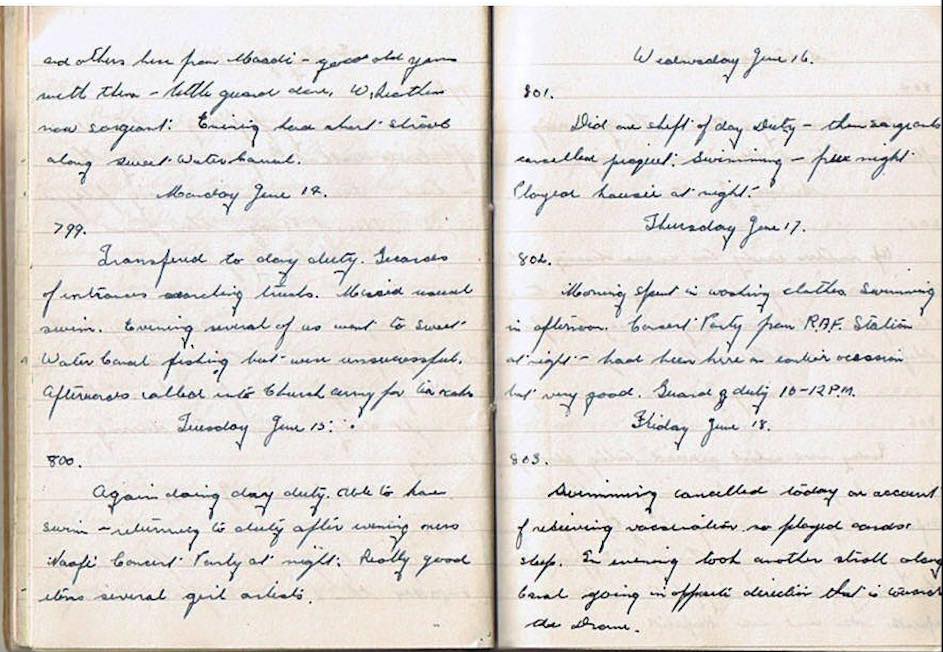 and others here from Maadi - good old yarns
with them - little guard done. W.
now sargent. Evening had short stroll
along Sweet Water Canal.
Monday June 14.
799.
Transfered to day duty. Guards
of entrances searching trucks. Missed usual
swim. Evening several of us went to Sweet
Water Canal fishing but were unsuccessful.
Afterwards called into Church Army for
Tuesday June 15.
800.
Again doing day duty. Able to have
swim - returning to duty after evening mess
Naafi Concert Party at night. Really good
items several girl artists.
Wednesday June 16.
801.
Did one shift of day duty - then sargeants
cancelled piquet. Swimming - free night
Played housie at night.
Thursday June 17.
802.
Morning spent in washing clothes. Swimming
in afternoon. Concert Party from R.A.F. Station
at night - had been here on earlier occasion
but very good. Guard duty 10-12 P.M.
Friday June 18.
803.
Swimming cancelled today on account
of receiving vaccination so played cards &
sleep. In evening took another stroll along
Canal going in opposite direction that is toward
the Drome.